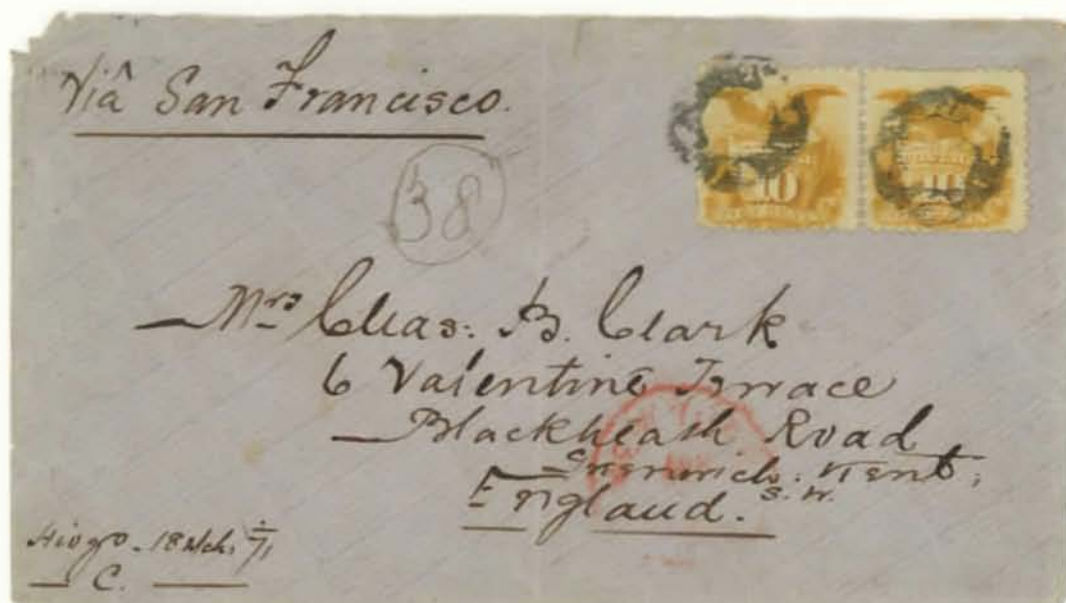 Viâ San Francisco.
38
10
10
Mrs Chas: B. Clark
6 Valentine Terrace
Blackheath Road
Greenwich. Kent,
S. W.
England.
Hiogo. 18 Mch. /71
C.